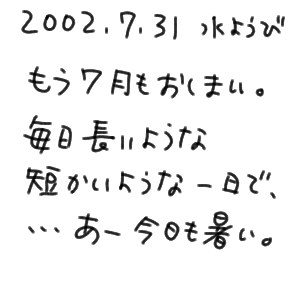 2002.7.31 水ようび
もう7月もおしまい。
毎日長いような
短かいような一日で、
… あー今日も暑い。